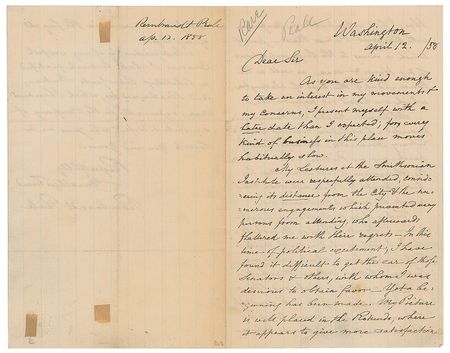 Rembrandt Peale
ap. 12. 1858
Rare
Peale
Washington
April 12. /58
Dear Sir
As you are kind enough
to take an interest in my movements &
my concerns, I present myself with a
later date than I expected; for every
kind of business in this place moves
habitually slow.
My Lectures at the Smithsonian
Institute were respectfully attended, consid-
ering its distance from the City & the nu-
merous engagements which prevented many
persons from attending, who afterwards
flattered me with their regrets — In this
time of political excitement, I have
found it difficult to get the ear of those
Senators & others, with whom I was
desirous to obtain favor — Yet a be-
ginning has been made. My Picture
is well placed in the Rotundo, where
it appears to give more satisfaction